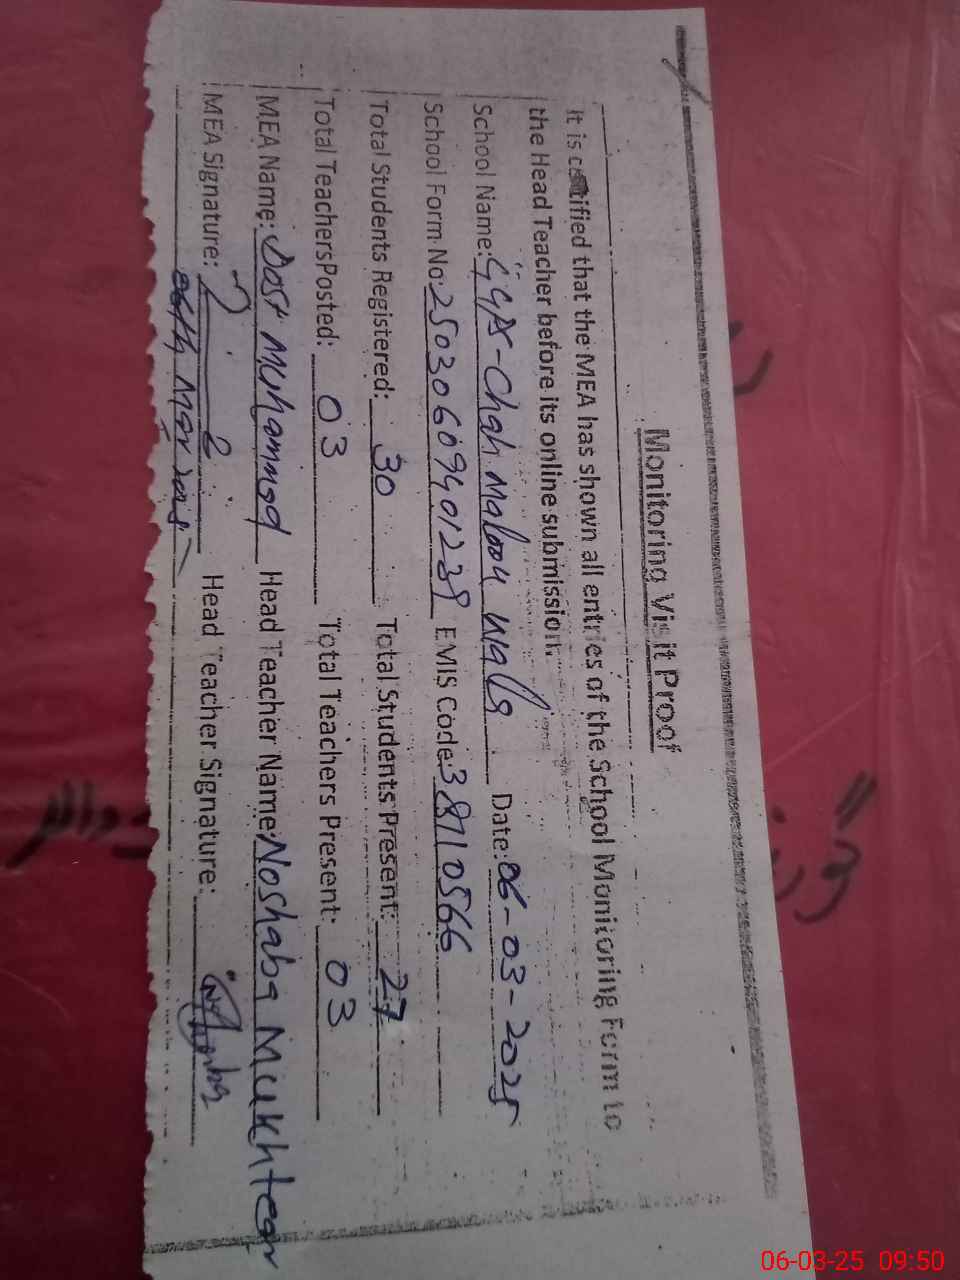 Monitoring Visit Proof
It is certified that the MEA has shown all entries of the School Monitoring Form to
the Head Teacher before its online submission.
School Name: GGPS-Chah Malook Wala Date: 06-03-2025
School Form No: 25030609401239 EMIS Code: 38710566
Total Students Registered: 30 Total Students Present: 27
Total Teachers Posted: 03 Total Teachers Present: 03
MEA Name: Dost Muhammad Head Teacher Name: Noshaba Mukhtear
MEA Signature: Head Teacher Signature:
06-03-25 09:50